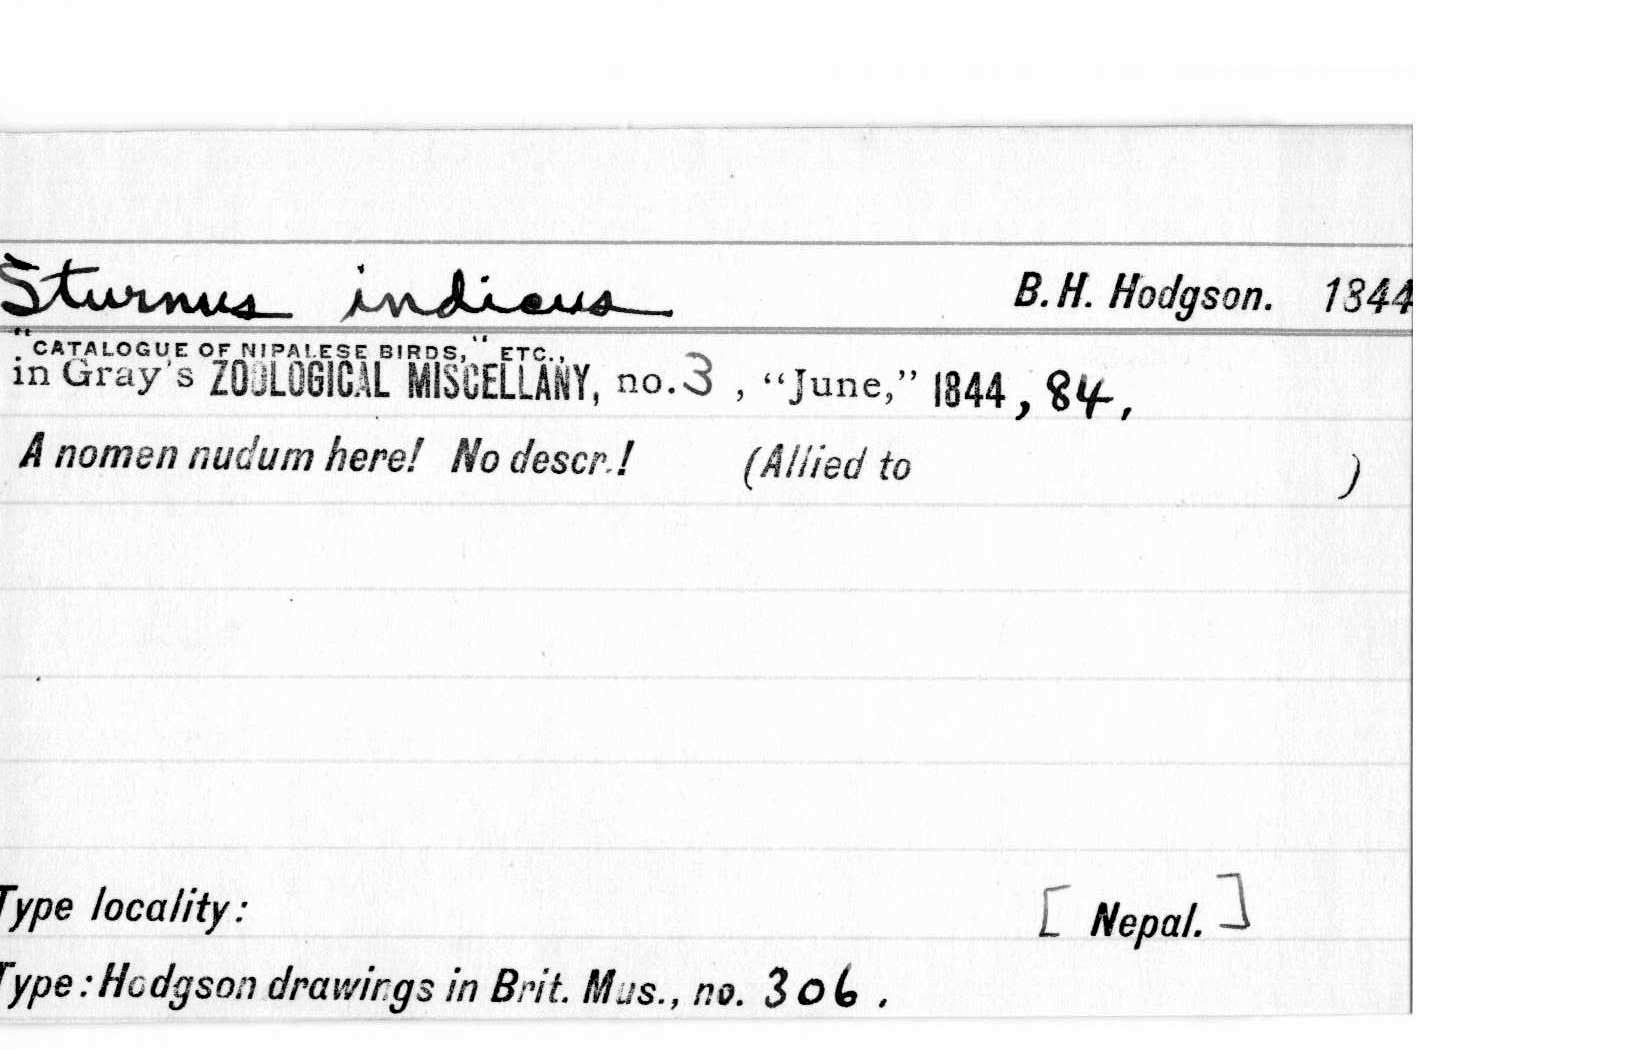 Sturnus indicus B. H. Hodgson. 1844
"CATALOGUE OF NIPALESE BIRDS," ETC.,
in Gray's ZOOLOGICAL MISCELLANY, no. 3, "June," 1844, 84.
A nomen nudum here! No descr.! (Allied to )
Type locality: [Nepal.]
Type: Hodgson drawings in Brit. Mus., no. 306.